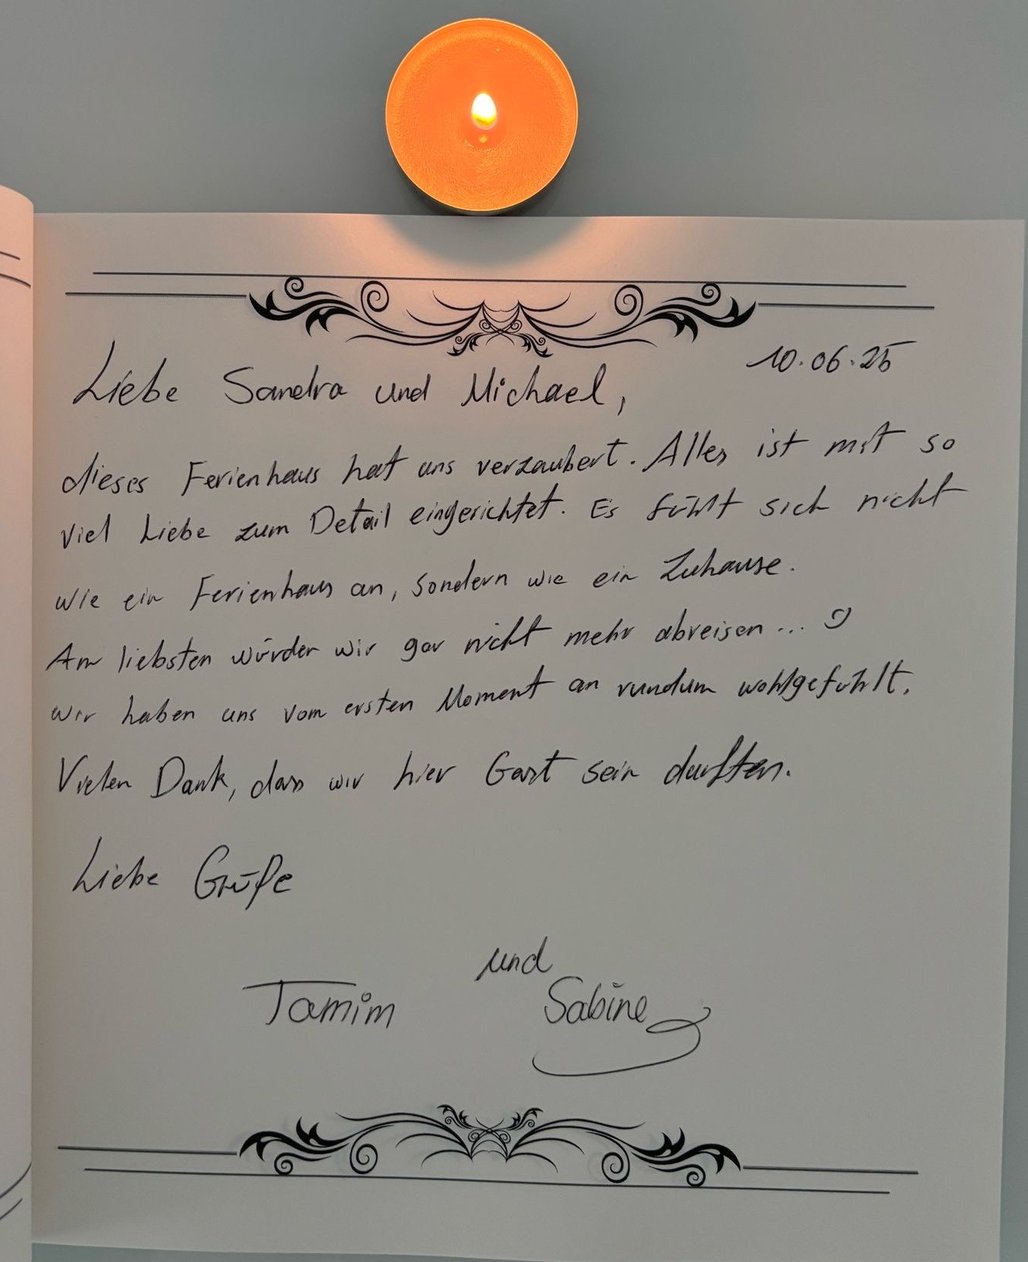 10.06.25
Liebe Sandra und Michael,
dieses Ferienhaus hat uns verzaubert. Alles ist mit so
viel Liebe zum Detail eingerichtet. Es fühlt sich nicht
wie ein Ferienhaus an, sondern wie ein Zuhause.
Am liebsten würden wir gar nicht mehr abreisen... :)
Wir haben uns vom ersten Moment an rundum wohlgefühlt.
Vielen Dank, dass wir hier Gast sein durften.
Liebe Grüße
und
Tamim Sabine